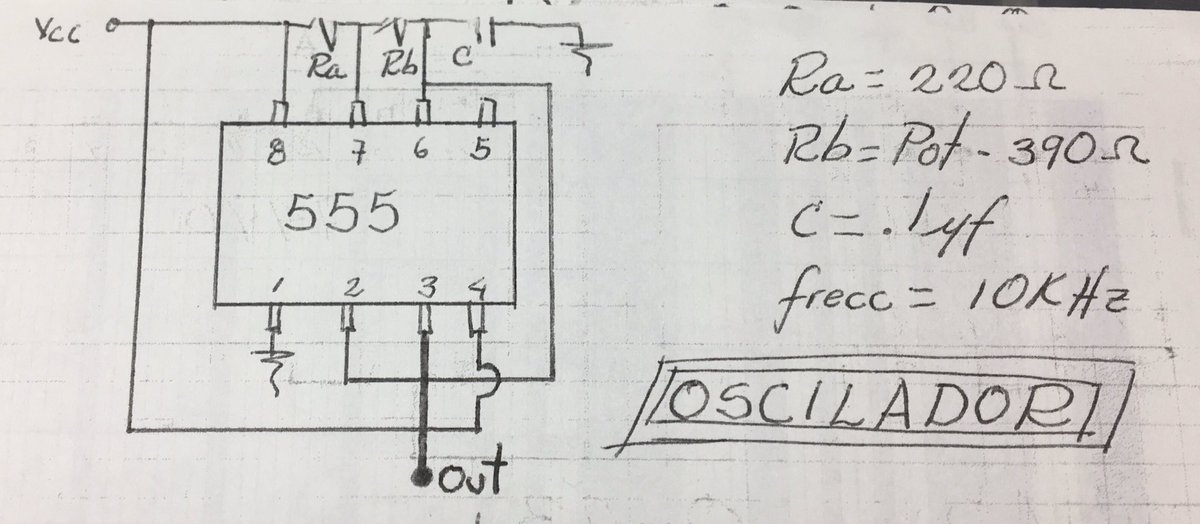 Vcc
Ra
Rb
C
8 7 6 5
555
1 2 3 4
out
Ra = 220 Ω
Rb = Pot - 390 Ω
C = .1 µf
frecc = 10KHz
OSCILADOR